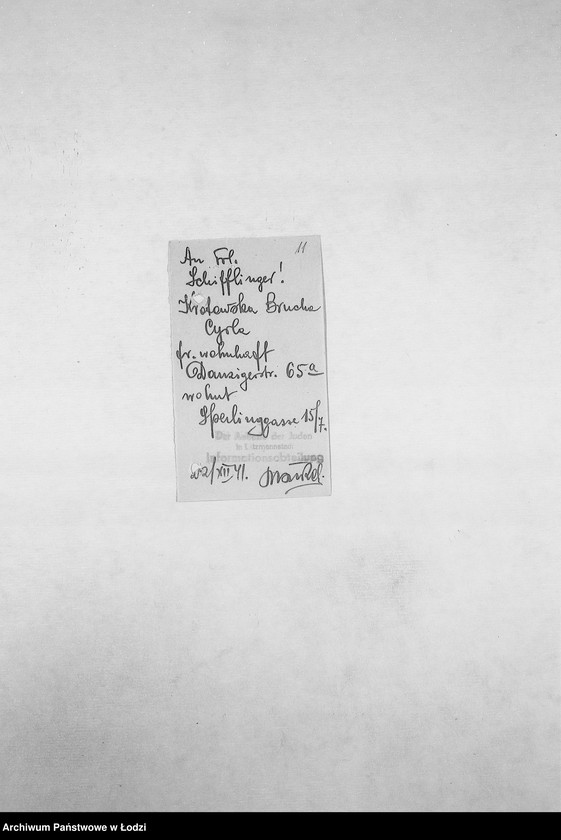 11
An Frl.
Schifflinger!
Krotowska Brucha
Cyrla
fr. wohnhaft
Danzigerstr. 65a
wohnt
Sperlinggasse 15/7.
Der Aelteste der Juden
in Litzmannstadt
Informationsabteilung
22/XII 41.
Archiwum Państwowe w Łodzi